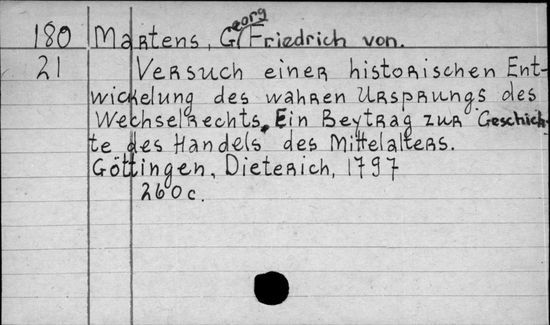 180 Martens, Georg Friedrich von.
21 Versuch einer historischen Ent-
wickelung des wahren Ursprungs des
Wechselrechts. Ein Beytrag zur Geschich-
te des Handels des Mittelalters.
Göttingen, Dieterich, 1797
260 c.